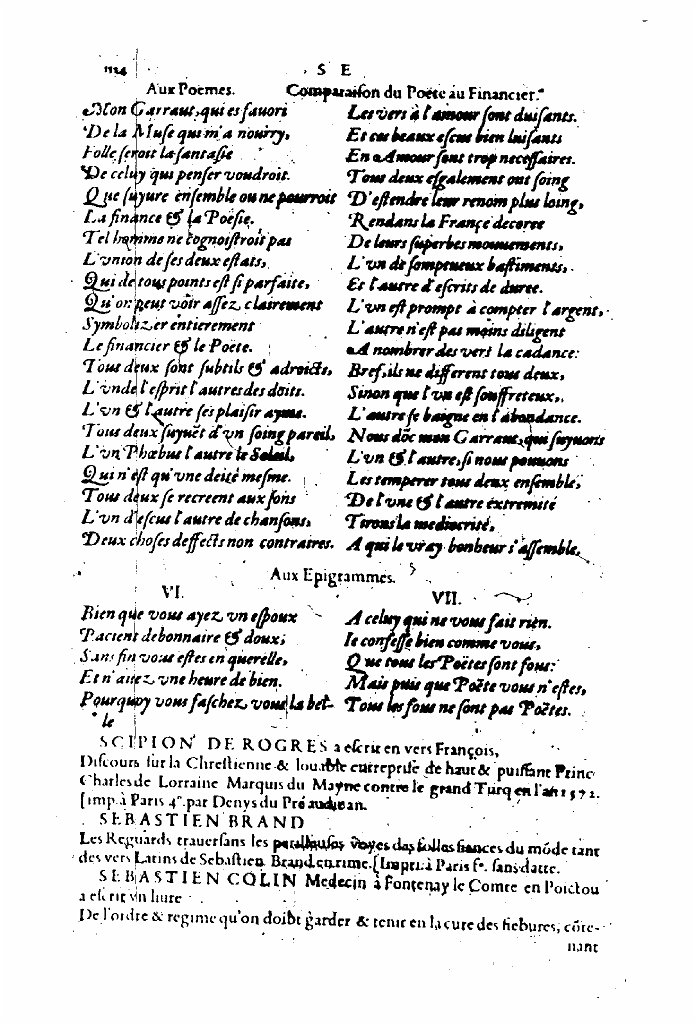 1124
S E
Aux Poëmes.
Mon Garraut, qui es fauori
De la Muse qui m'a nourry,
Folle seroit la fantasie
De celuy qui penser voudroit.
Que suyure ensemble ou ne pourroit
La finance & la Poësie.
Tel homme ne cognoistroit pas
L'vnion de ses deux estats,
Qui de tous points est si parfaite,
Qu'on peut voir assez clairement
Symbolizer entierement
Le financier & le Poëte.
Tous deux sont subtils & adroicts,
L'vn de l'esprit l'autres des doits.
L'vn & l'autre ses plaisir ayme.
Tous deux suyuēt d'vn soing pareil,
L'vn Phœbus l'autre le Soleil,
Qui n'est qu'vne deité mesme.
Tous deux se recreent aux sons
L'vn d'escus l'autre de chansons,
Deux choses d'effects non contraires.
Comparaison du Poëte au Financier.
Les vers à l'amour sont duisants.
Et ces beaux escus bien luisants
En Amour sont trop necessaires.
Tous deux esgalement ont soing
D'estendre leur renom plus loing,
Rendans la France decoree
De leurs superbes mouuements,
L'vn de sompeueux bastiments,
Et l'autre d'escrits de duree.
L'vn est prompt à compter l'argent,
L'autre n'est pas moins diligent
A nombrer des vers la cadance:
Bref, ils ne different tous deux,
Sinon que l'vn est souffreteux,
L'autre se baigne en l'abondance.
Nous dōc mon Garraut, qui suyuons
L'vn & l'autre, si nous pouuons
Les temperer tous deux ensemble,
De l'vne & l'autre extremité
Tirons la mediocrité,
A qui le vray bonheur s'assemble,
Aux Epigrammes.
VI.
Bien que vous ayez vn espoux
Patient debonnaire & doux;
Sans fin vous estes en querelle,
Et n'auez vne heure de bien.
Pourquoy vous faschez vous la bel-
le
VII.
A celuy qui ne vous fait rien.
Ie confesse bien comme vous,
Que tous les Poëtes sont fous:
Mais puis que Poëte vous n'estes,
Tous les fous ne sont pas Poëtes.
SCIPION DE ROGRES a escrit en vers François,
Discours sur la Chrestienne & louable entreprise de haut & puissant Prince
Charles de Lorraine Marquis du Mayne contre le grand Turq en l'an 1572.
[imp. à Paris 4°. par Denys du Pré audican.
SEBASTIEN BRAND
Les Reguards trauersans les perilleuses voyes des folles fiances du mōde tant
des vers Latins de Sebastien Brand en rime. [Impri. à Paris f°. sans datte.
SEBASTIEN COLIN Medecin à Fontenay le Comte en Poictou
a escrit vn liure
De l'ordre & regime qu'on doibt garder & tenir en la cure des fiebures, cōte-
nant